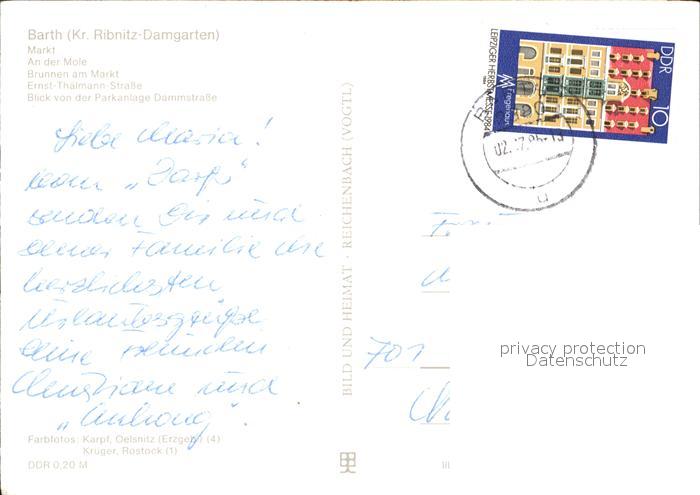 Barth (Kr. Ribnitz-Damgarten)
Markt
An der Mole
Brunnen am Markt
Ernst-Thälmann-Straße
Blick von der Parkanlage Dammstraße
Liebe Maria!
vom „Darß"
senden Dir und
deiner Familie die
herzlichsten
Urlaubsgrüße
deine Freundin
Christiane und
„Anhang".
Farbfotos: Karpf, Oelsnitz (Erzgeb.) (4)
Krüger, Rostock (1)
DDR 0,20 M
BILD UND HEIMAT · REICHENBACH (VOGTL)
DDR
10
LEIPZIGER HERBSTMESSE 1984
Fregehaus
02.
Frau
701
privacy protection
Datenschutz